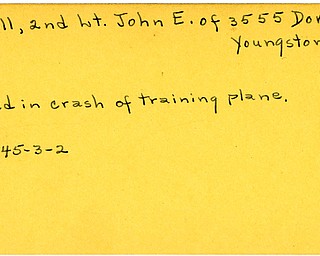 ll, 2nd Lt. John E. of 3555 Do
Youngsto
d in crash of training plane.
45-3-2